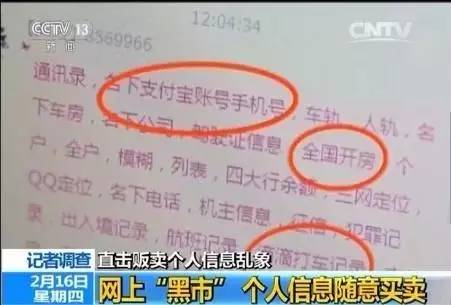 CCTV 13
新闻
12:04:34
CNTV
3569966
通讯录,名下支付宝账号手机号,车轨,人轨,名
下车房,名下公司,驾驶证信息,全国开房,个
户,全户,模糊,列表,四大行余额,三网定位,
QQ定位,名下电话,机主信息,征信,犯罪记
录,出入境记录,航班记录,滴滴打车记录
记者调查
直击贩卖个人信息乱象
2月16日
星期四
网上“黑市” 个人信息随意买卖